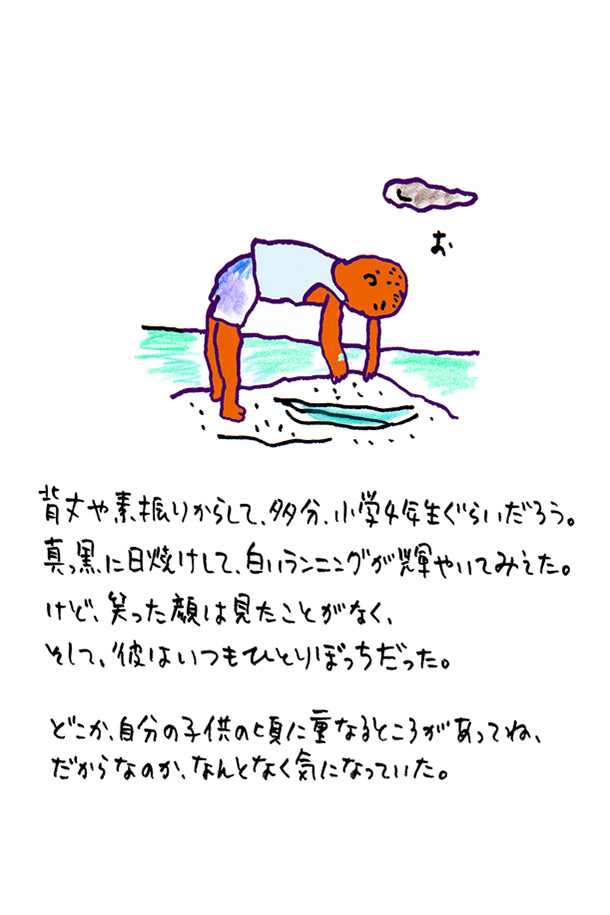 お
背丈や素振りからして、多分、小学4年生ぐらいだろう。
真っ黒に日焼けして、白いランニングが輝やいてみえた。
けど、笑った顔は見たことがなく、
そして、彼はいつもひとりぼっちだった。
どこか、自分の子供の頃に重なるところがあってね、
だからなのか、なんとなく気になっていた。